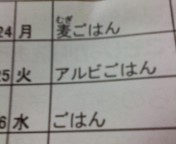 24 月 麦ごはん
むぎ
25 火 アルビごはん
26 水 ごはん